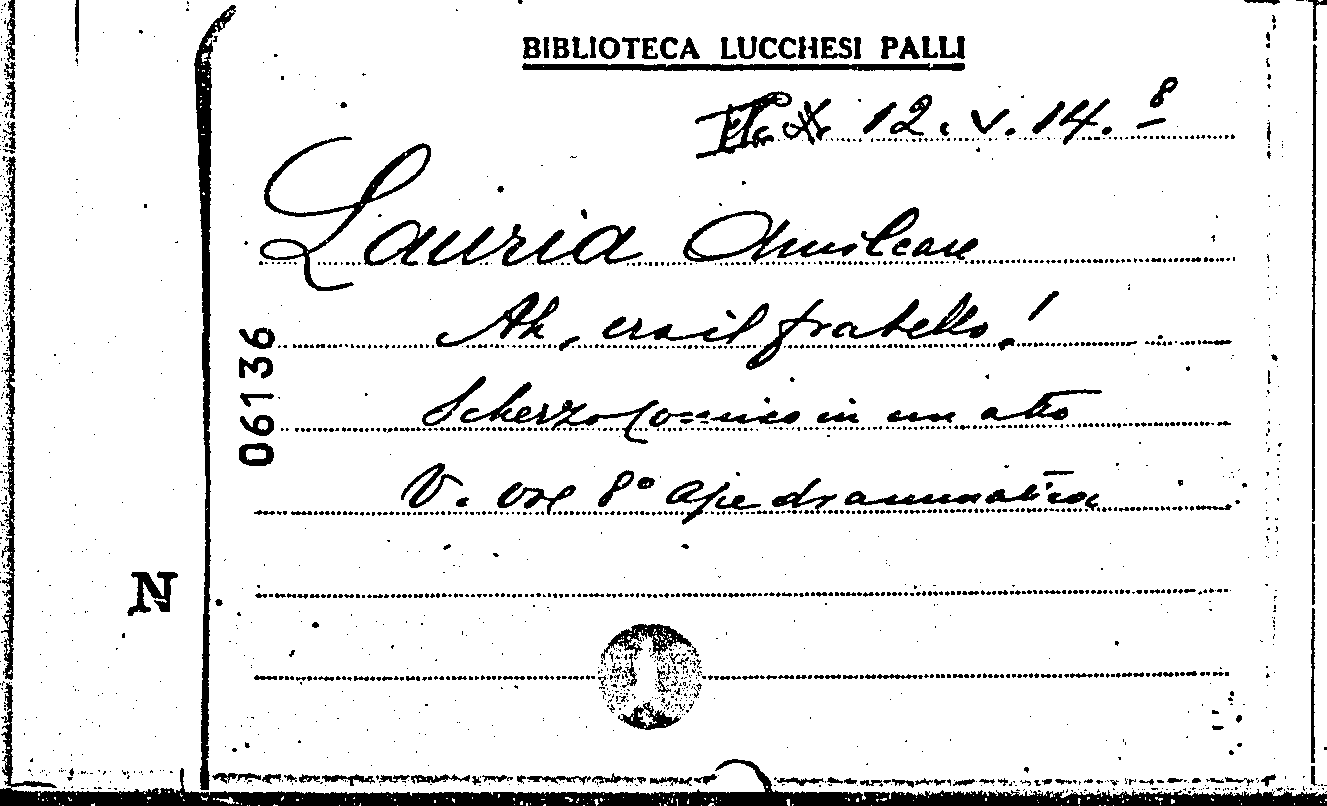 BIBLIOTECA LUCCHESI PALLI
12. v. 14. 8
Lauria Amilcare
Ah, era il fratello!
Scherzo comico in un atto
V. 8° Ape drammatica
06136
N